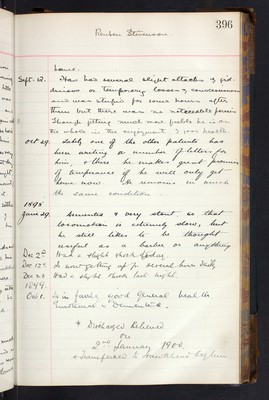 396
Reuben Stevenson
home.
Sept. 12. Has had several slight attacks of giddiness or temporary losses of consciousness
and was stupid for some hours after
them but there was no noticeable paresis
Though getting much more feeble he is on
the whole in the enjoyment of good health.
Oct 29. Lately one of the other patients has
been writing a number of letters for
him, & there he makes great promises
of temperance if he will only get
home now. He remains in much
the same condition.
1898
June 29. Demented & very stout, so that
locomotion is extremely slow, but
he still likes to be thought
useful as a barber or anything
Dec 2nd Had a slight shock today.
Dec 12th Is now getting up for several hours daily
Had a slight shock last night.
1899.
Oct 1. Is in fairly good general health
Emotional & Demented.
* Discharged Relieved
on
2nd January 1900.
& transferred to Asylum